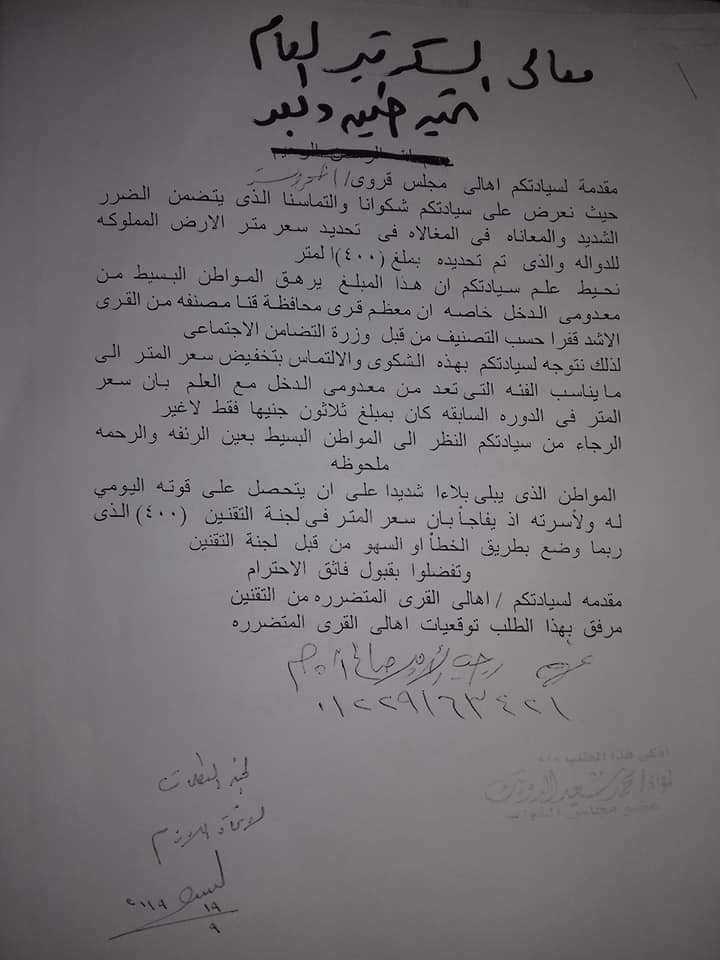 معالى السكرتير العام
تحيه طيبه وبعد
مقدمة لسيادتكم اهالى مجلس قروى /
حيث نعرض على سيادتكم شكوانا والتماسنا الذى يتضمن الضرر
الشديد والمعاناه فى المغالاه فى تحديد سعر متر الارض المملوكه
للدواله والذى تم تحديده بملغ (٤٠٠)ا لمتر
نحيط علم سيادتكم ان هذا المبلغ يرهق المواطن البسيط من
معدومى الدخل خاصه ان معظم قرى محافظة قنا مصنفه من القرى
الاشد فقرا حسب التصنيف من قبل وزرة التضامن الاجتماعى
لذلك نتوجه لسيادتكم بهذه الشكوى والالتماس بتخفيض سعر المتر الى
مايناسب الفئه التى تعد من معدومى الدخل مع العلم بان سعر
المتر فى الدوره السابقه كان بمبلغ ثلاثون جنيها فقط لاغير
الرجاء من سيادتكم النظر الى المواطن البسيط بعين الرنفه والرحمه
ملحوظه
المواطن الذى يبلى بلاءا شديدا على ان يتحصل على قوته اليومي
له ولأسرته اذ يفاجأ بان سعر المتر فى لجنة التقنين (٤٠٠) الذى
ربما وضع بطريق الخطأ او السهو من قبل لجنة التقنين
وتفضلوا بقبول فائق الاحترام
مقدمه لسيادتكم / اهالى القرى المتضرره من التقنين
مرفق بهذا الطلب توقعيات اهالى القرى المتضرره
٠١٢٢٩١٦٣٤٢١
ازكى هذا الطلب
عضو مجلس النواب
لاتخاذ اللازم
٢٠١٩
١٩
٩